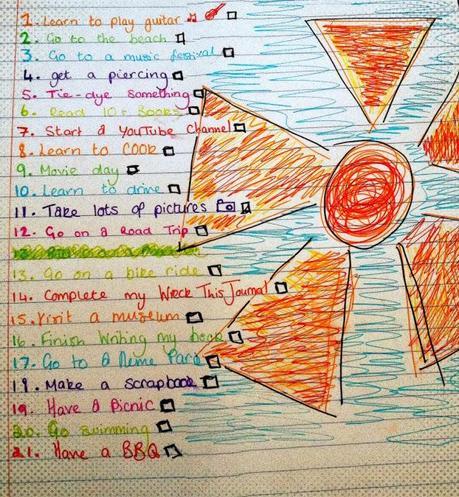 1. Learn to play guitar
2. Go to the beach
3. Go to a music festival
4. get a piercing
5. Tie-dye something
6. Read 10+ Books
7. Start a YouTube Channel
8. Learn to COOK
9. Movie day
10. Learn to drive
11. Take lots of pictures
12. Go on a Road Trip
13. Go on a bike ride
14. Complete my Wreck This Journal
15. Visit a museum
16. Finish Writing my book
17. Go to a Theme Park
18. Make a scrapbook
19. Have a Picnic
20. Go swimming
21. Have a BBQ